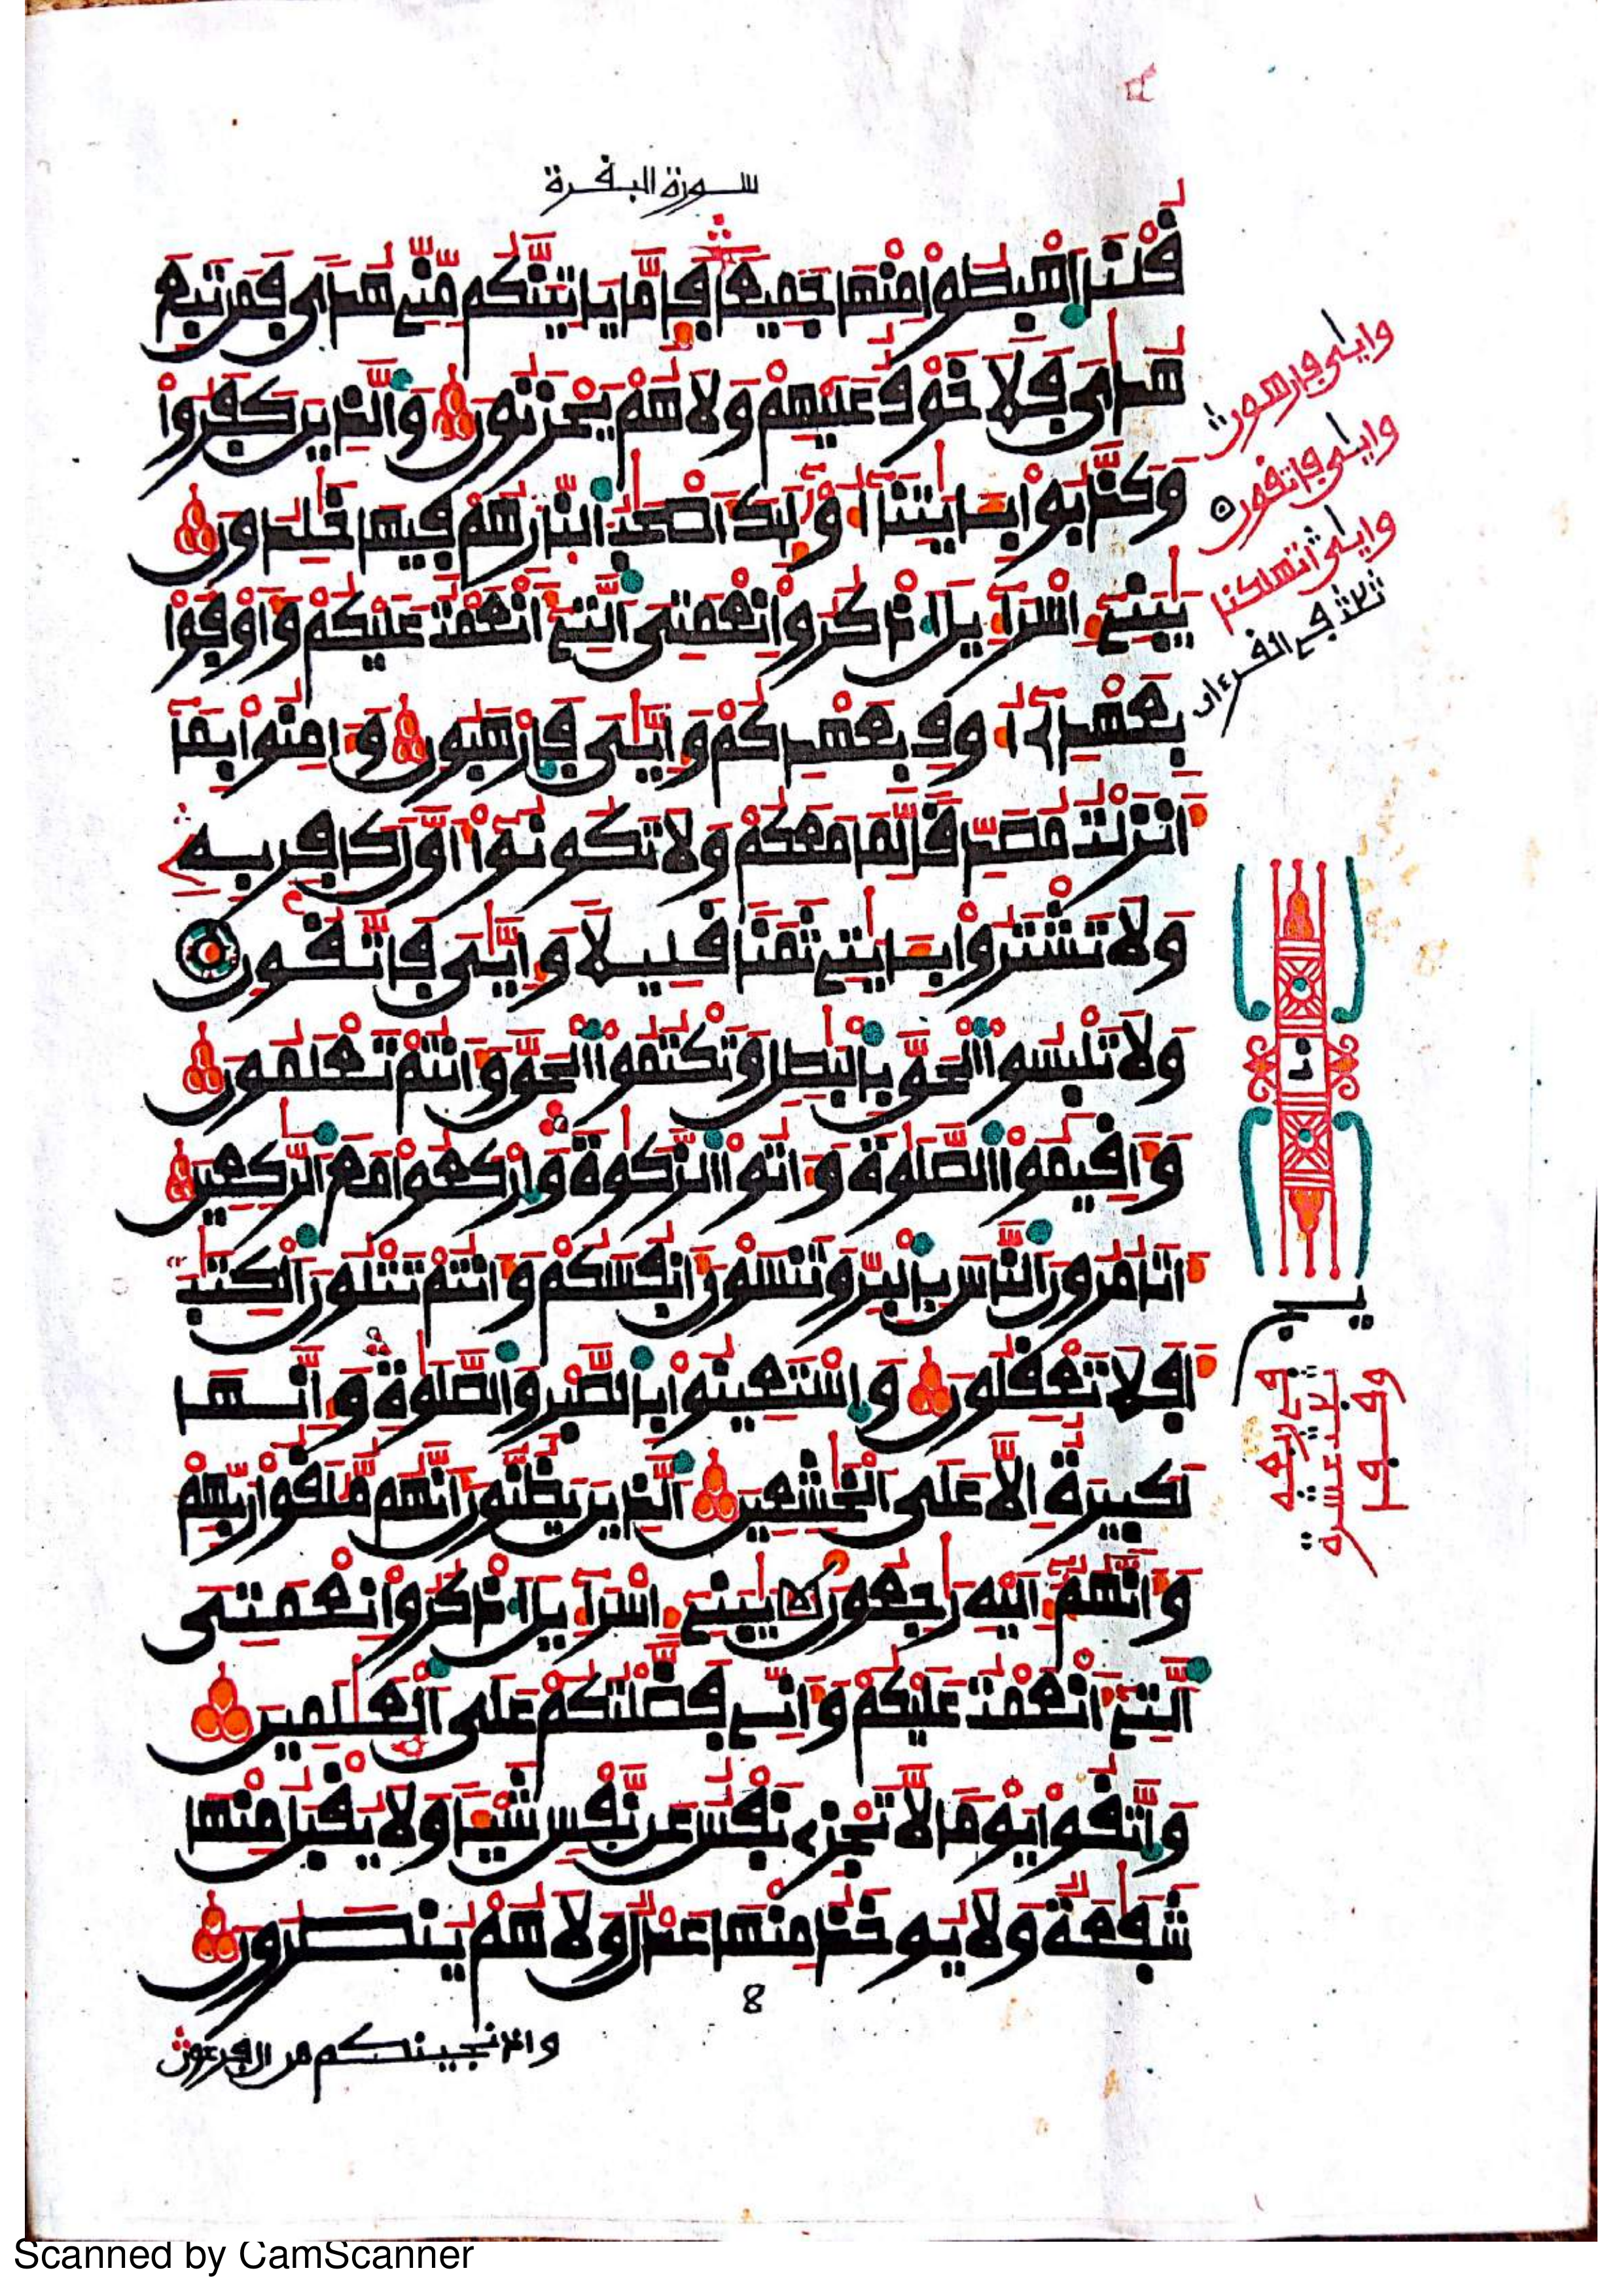 سورة البقرة
قلنا اهبطوا منها جميعا فإما ياتينكم مني هدى فمن تبع
هداي فلا خوف عليهم ولا هم يحزنون والذين كفروا
وكذبوا بـايتنا أولئك أصحب النار هم فيها خلدون
يبني إسراءيل اذكروا نعمتي التي أنعمت عليكم وأوفوا
بعهدي أوف بعهدكم وإيي فارهبون وءامنوا بما
أنزلت مصدقا لما معكم ولا تكونوا أول كافر به
ولا تشتروا بـايتي ثمنا قليلا وإيي فاتقون
ولا تلبسوا الحق بالبطل وتكتموا الحق وأنتم تعلمون
وأقيموا الصلوة وءاتوا الزكوة واركعوا مع الركعين
أتامرون الناس بالبر وتنسون أنفسكم وأنتم تتلون الكتب
أفلا تعقلون واستعينوا بالصبر والصلوة وإنها
لكبيرة إلا على الخشعين الذين يظنون أنهم ملقوا ربهم
وأنهم إليه رجعون يبني إسراءيل اذكروا نعمتي
التي أنعمت عليكم وأني فضلتكم على العلمين
واتقوا يوما لا تجزي نفس عن نفس شيـا ولا يقبل منها
شفعة ولا يوخذ منها عدل ولا هم ينصرون
8
وإذ نجينكم من ال فرعون
وايي فارهبون
وايي فاتقون
ثلث في القرءان
Scanned by CamScanner